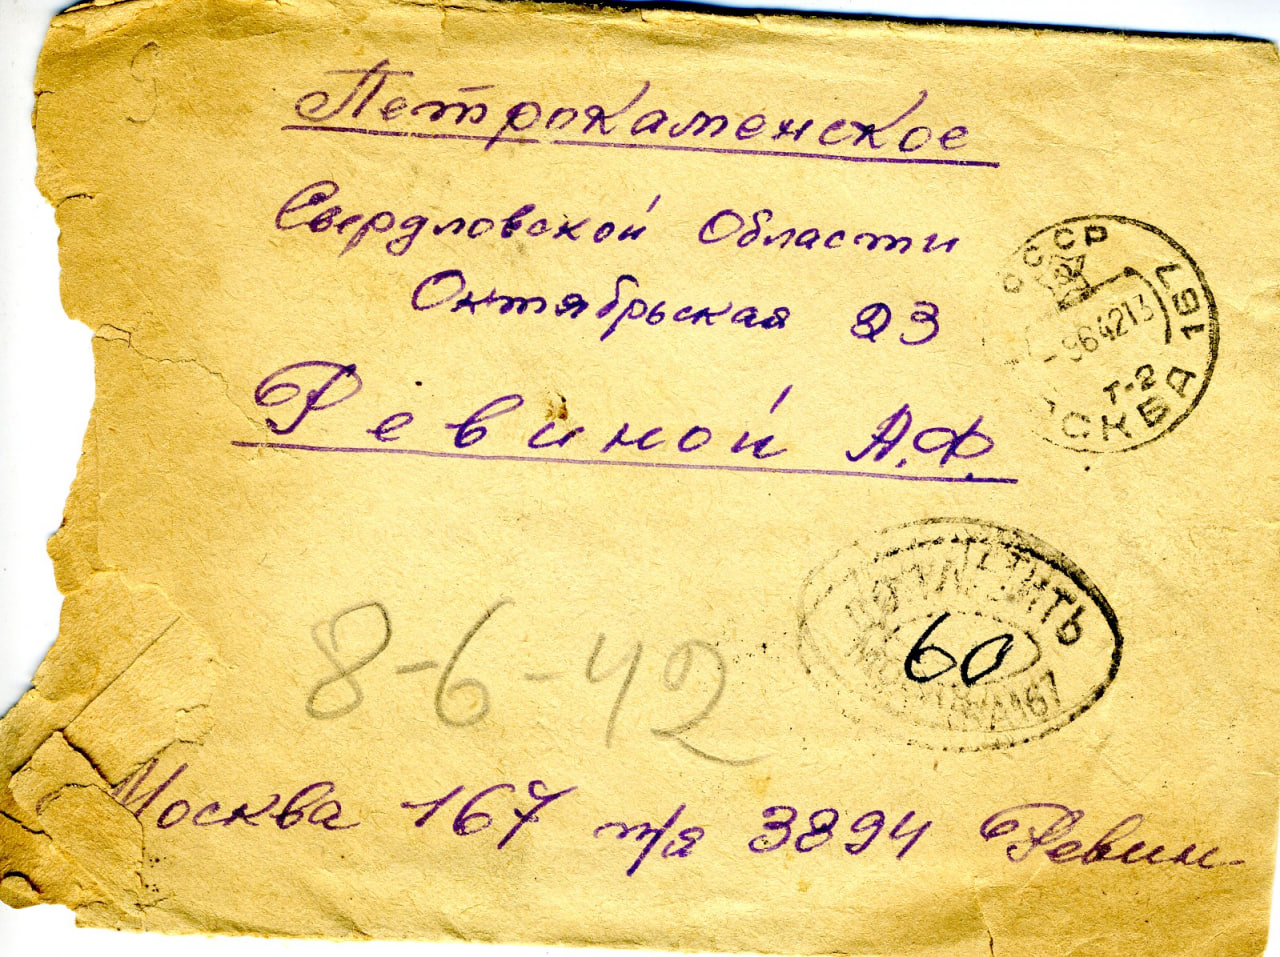 Петрокаменское
Свердловской Области
Октябрьская 23
Ревиной А.Ф.
СССР
964213
Т-2
МОСКВА 167
ДОПЛАТИТЬ
60
МОСКВА 167
8-6-42
Москва 167 п/я 3894 Ревин